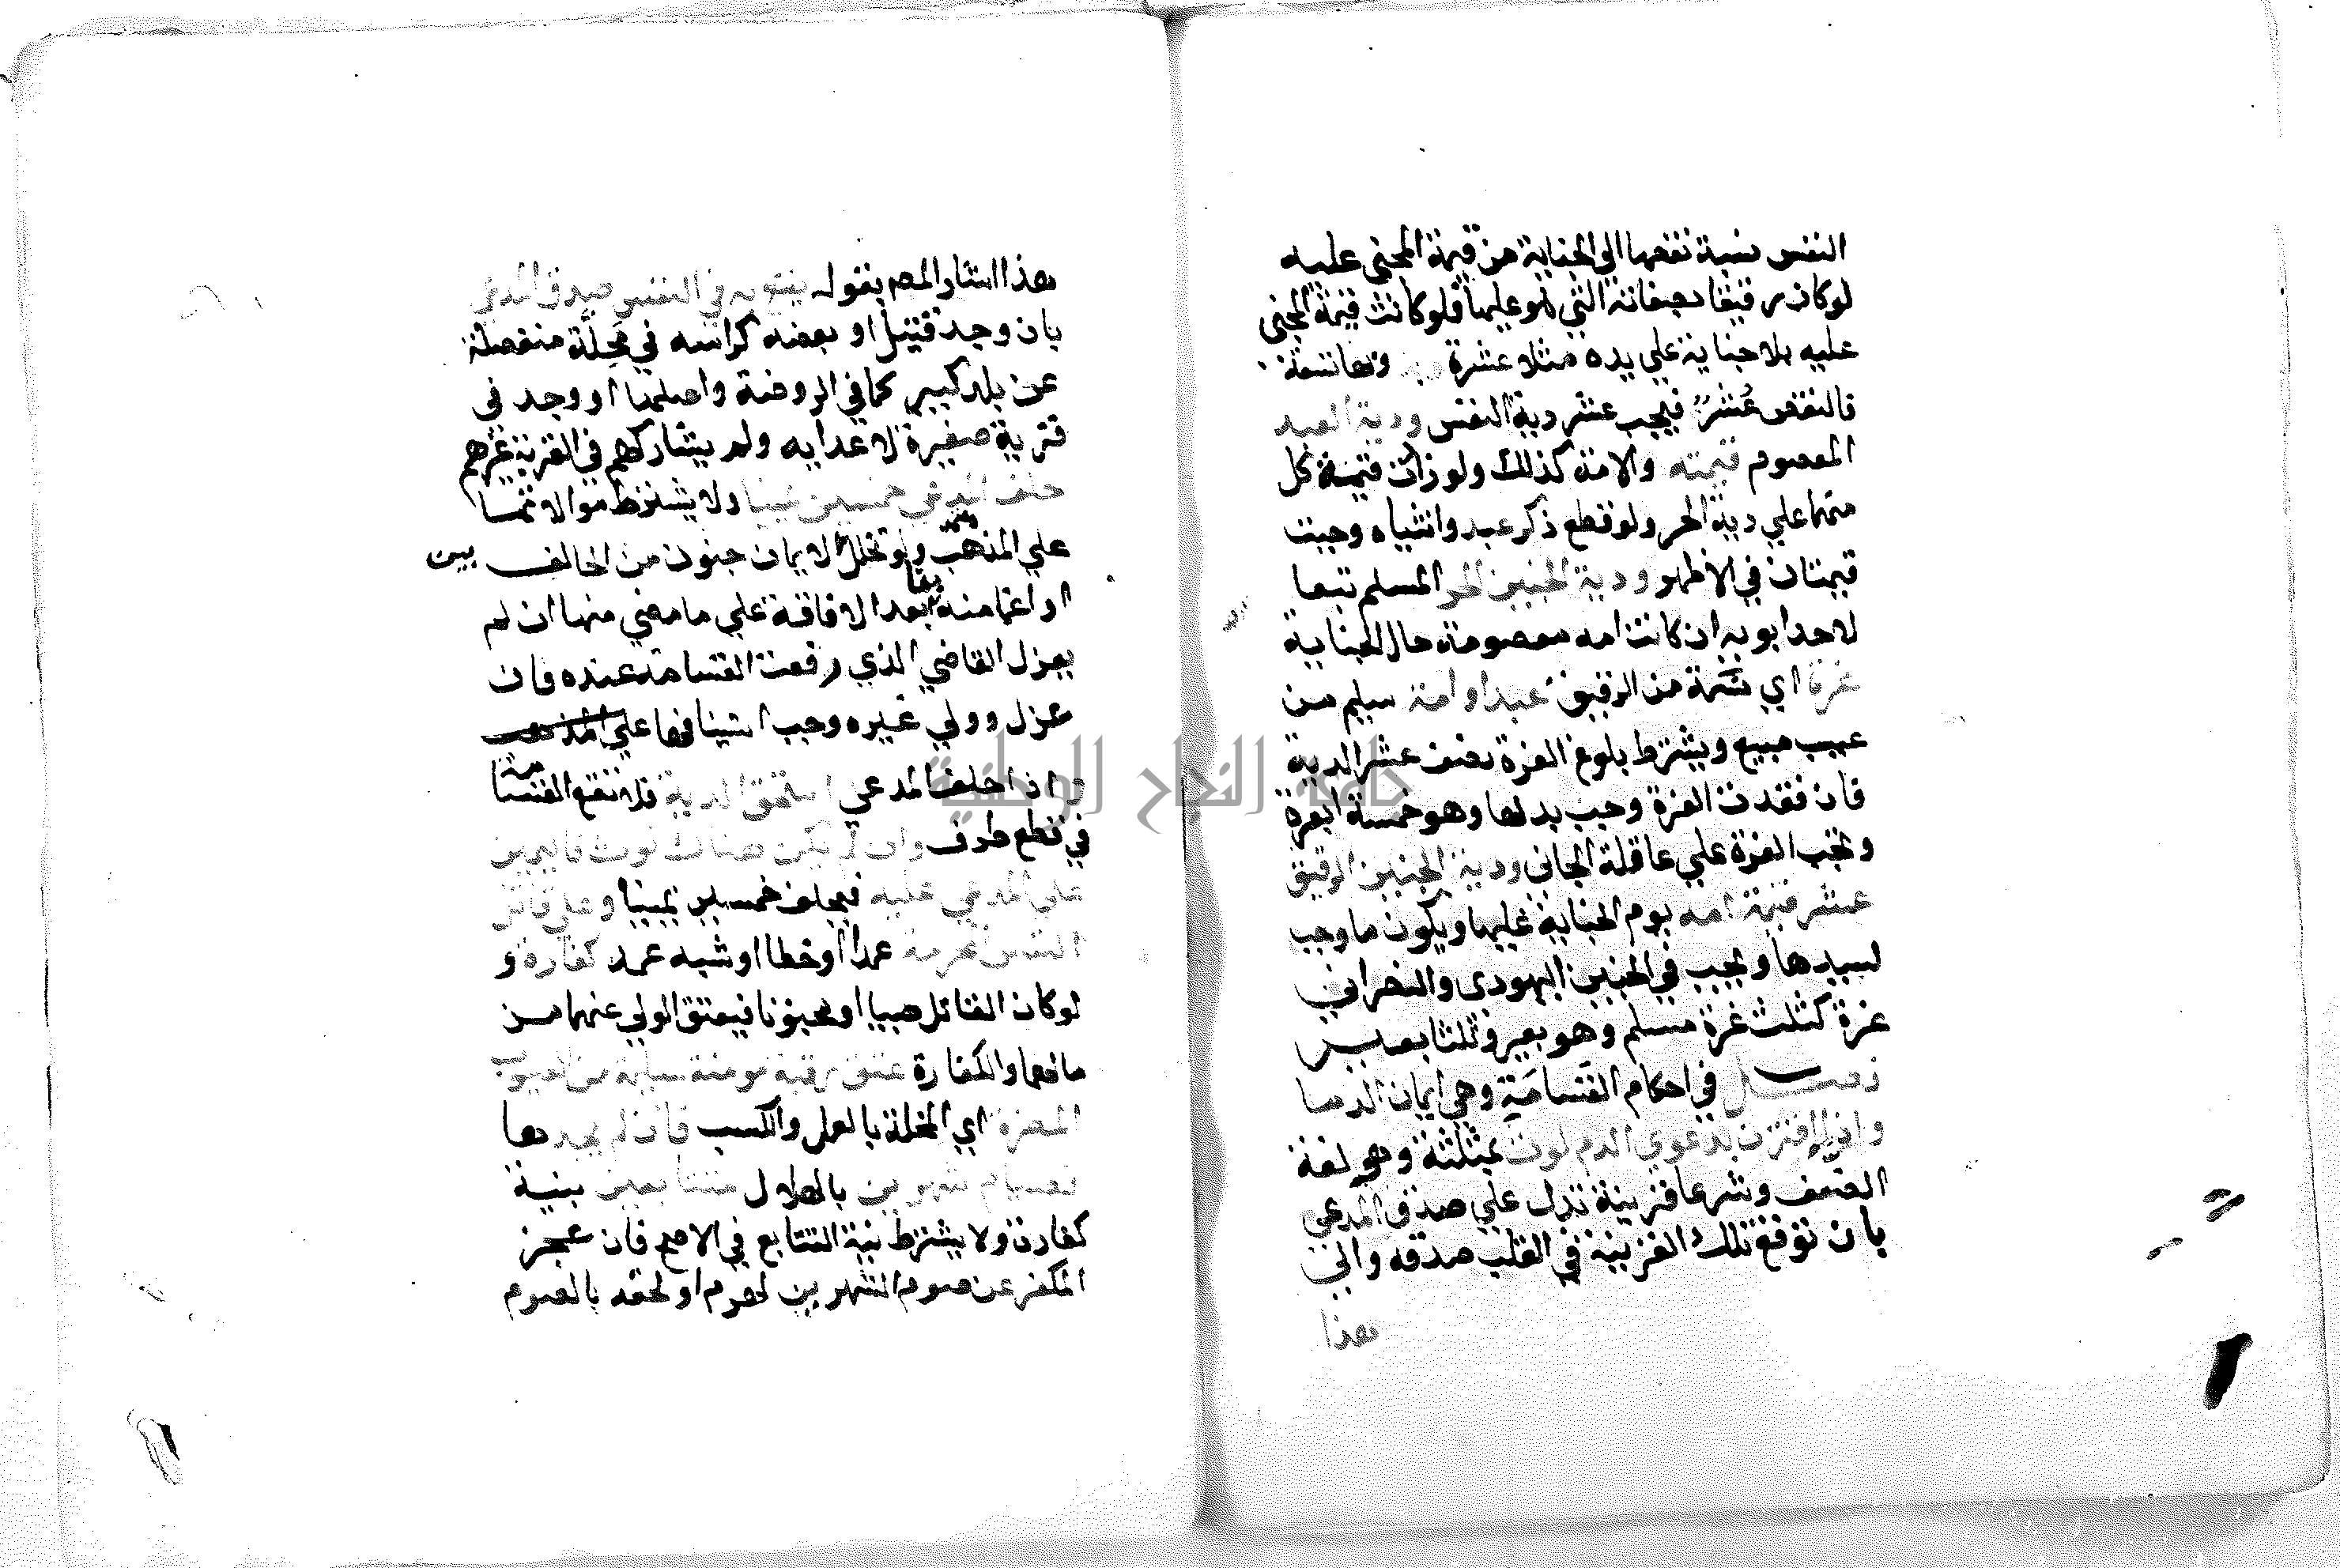 النفس نسبة نقصها الي الجناية من قيمة المجني عليه
لو كان رقيقا بصفاته التي هو عليها فلو كانت قيمة المجني
عليه بلا جناية علي يده مثلا عشرة وبها تسعة
فالنقص عُشرٌ فيجب عشر دية النفس ودية العبد
المعصوم قيمته والامة كذلك ولو زادت قيمة كل
منهما علي دية الحر ولو قطع ذكر عبد وانثياه وجبت
قيمتان في الاظهر ودية الجنين الحر المسلم تبعا
لاحد ابويه ان كانت امه معصومة حال الجناية
غرة اي نسمة من الرقيق عبد او امة سليم من
عيب مبيع ويشترط بلوغ الغرة نصف عشر الدية
فان فقدت الغرة وجب بدلها وهو خمسة ابعرة
وتجب الغرة علي عاقلة الجاني ودية الجنين الرقيق
عشر قيمة امه يوم الجناية عليها ويكون ما وجب
لسيدها ويجب في الجنين اليهودي والنصراني
غرة كثلث غرة مسلم وهو بعير وثلثا بعير
فصل في احكام القسامة وهي ايمان الدما
واذا اقترن بدعوي الدم لوث بمثلثة وهو لغة
الضعف وشرعا قرينة تدل علي صدق المدعي
بان توقع تلك القرينة في القلب صدقه والي
هذا
هذا اشار المص بقوله يقع به في النفس صدق المدعي
بان وجد قتيل او بعضه كراسه في مَحِلَّة منفصلة
عن بلد كبير كما في الروضة واصلها او وجد في
قرية صغيرة لاعدايه ولم يشاركهم في القرية غيرهم
حلف المدعي خمسين يمينا ولا يشترط موالاتها
علي المذهب ولو تخلل الايمان جنون من الحالف بين
او اغما منه بقا بعد الافاقة علي ما مضي منها ان لم
يعزل القاضي الذي وقعت القسامة عنده فان
عزل وولي غيره وجب استينافها علي المذهب
واذا حلف المدعي استحق الدية فلا تقع القسامة
في قطع طرف وان لم يكن هناك لوث فاليمين
علي المدعي عليه فيحلف خمسين يمينا وعلي قاتل
النفس المحرمة عمدا او خطا او شبه عمد كفارة و
لو كان القاتل صبيا او مجنونا فيعتق الولي عنهما من
مالهما والكفارة عتق رقبة مومنة سليمة من العيوب
المضرة اي المخلة بالعمل والكسب فان لم يجدها
فصيام شهرين بالهلال متتابعين بنية
كفارة ولا يشترط نية التتابع في الاصح فان عجز
المكفر عن صوم الشهرين لهرم او لحقه بالصوم
جامعة النجاح الوطنية